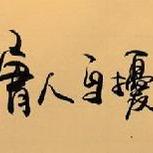 庸人自擾